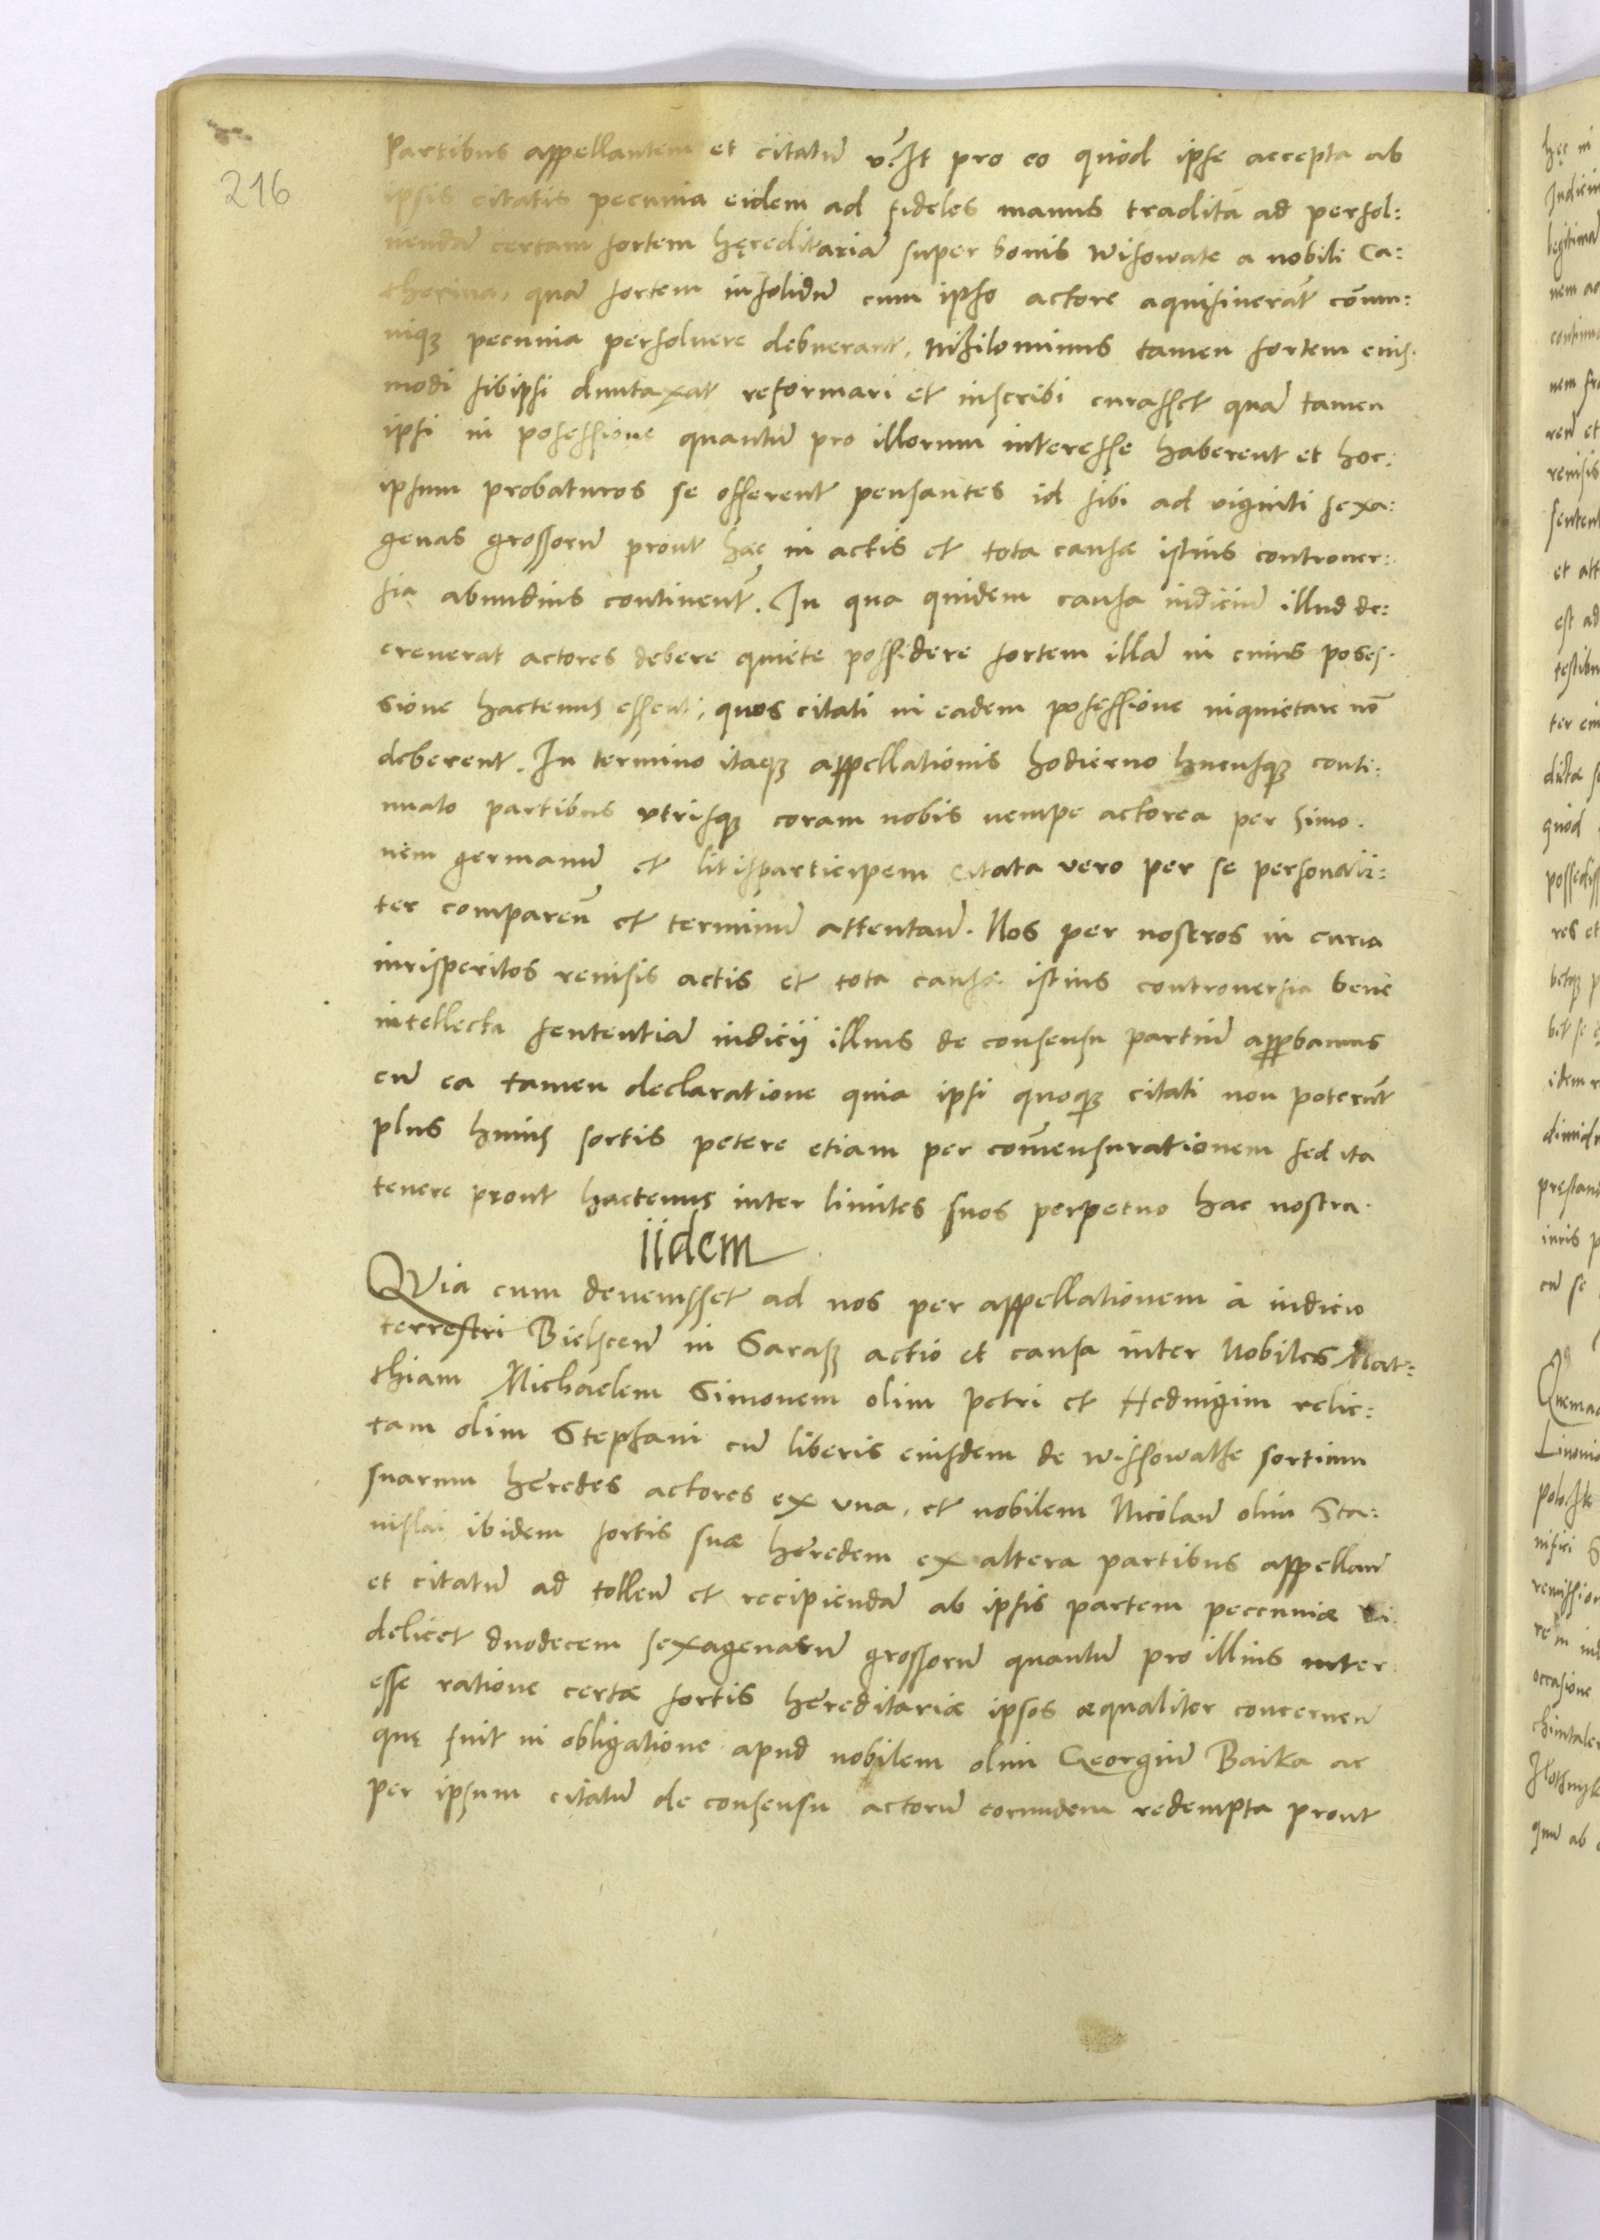 216
Partibus appellantem et citatū pro eo quod ipse accepta ab
ipsis citatis pecunia eidem ad fideles manus tradita ad persol:
uendā certam sortem hęreditariā super bonis Wisowate a nobili Ca:
therina, quā sortem insolidū cum ipso actore aquisiuerāt cōmu:
niq₃ pecunia persoluere debuerant, nihilominus tamen sortem eius.
modi sibipsi duntaxat reformari et inscribi curasset quā tamen
ipsi in posessione quantū pro illorum interesse haberent et hoc:
ipsum probaturos se offerent pensantes id sibi ad viginti sexa:
genas grossorū prout hæc in actis et tota causæ istius controuer:
sia abundius continent̄. In qua quidem causa iudiciū illud de:
creuerat actores debere quiete possidere sortem illā in cuius poses.
sione hactenus essent, quos citati in eadem posessione inquietare nō
deberent. In termino itaq₃ appellationis hodierno hucusq₃ conti:
nuato partibus vtrisq₃ coram nobis nempe actorea per Simo.
nem germanū et litisparticipem citata vero per se personali:
ter comparen̄ et terminū attentan̄. Nos per nostros in curia
iurisperitos reuisis actis et tota causæ istius controuersia bene
intellecta sententiā iudicij illius de consensu partiū approbamus
cū ea tamen declaratione quia ipsi quoq₃ citati non poterūt
plus huius sortis petere etiam per cōmensurationem sed ita
tenere prout hactenus inter limites suos perpetuo hac nostra.
iidem
QVia cum deuenisset ad nos per appellationem à iudicio
terrestri Bielscen̄ in Saraß actio et causa inter Nobiles Mat:
thiam Michaelem Simonem olim Petri et Heduigim relic:
tam olim Stephani cū liberis eiusdem de Wissowathe sortium
suarum heredes actores ex vna, et nobilem Nicolaū olim Sta:
nislai ibidem sortis suæ heredem ex altera partibus appellan̄
et citatū ad tollen̄ et recipiendā ab ipsis partem pecuniæ vi.
delicet duodecem sexagenarū grossorū quantū pro illius inter
esse ratione certæ sortis hereditariæ ipsos æqualiter concernen̄
quę fuit in obligatione apud nobilem olim Georgiū Baika ac
per ipsum citatū de consensu actorū eorundem redempta prout